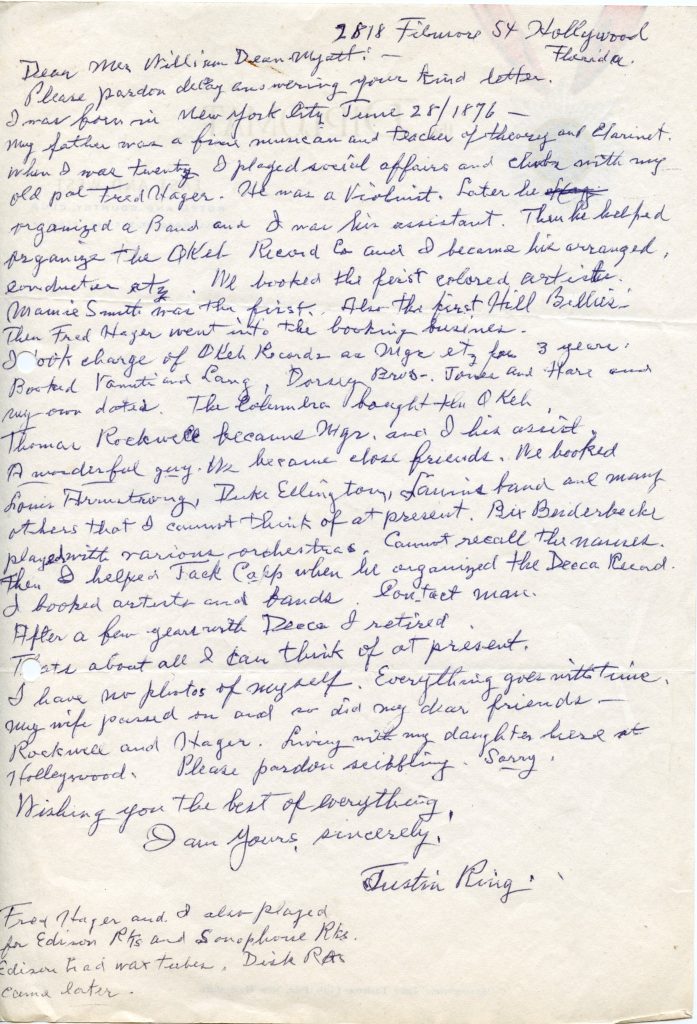 2818 Filmore St Hollywood
Florida.
Dear Mr William Dean Myatt: —
Please pardon delay answering your kind letter.
I was born in New York City June 28/1876 —
My father was a fine musician and teacher of theory and Clarinet.
when I was twenty I played social affairs and clubs with my
old pal Fred Hager. He was a Violinist. Later he
organized a Band and I was his assistant. Then he helped
organize the OKeh Record Co and I became his arranged,
conductor etz. We booked the first colored artists.
Mamie Smith was the first. Also the first Hill Billies.
Then Fred Hager went into the booking business.
I took charge of OKeh Records as Mgr etz for 3 years.
Booked Vanuti and Lang, Dorsey Bros. Jones and Hare and
my own dates. The Columbia bought the OKeh.
Thomas Rockwell became Mgr. and I his assist.
A wonderful guy. We became close friends. We booked
Louis Armstrong, Duke Ellington, band and many
others that I cannot think of at present. Bix Beiderbecke
played with various orchestras. Cannot recall the names.
Then I helped Jack Capp when he organized the Decca Record.
I booked artists and bands. Contact man.
After a few years with Decca I retired.
Thats about all I can think of at present.
I have no photos of myself. Everything goes with time.
My wife passed on and so did my dear friends —
Rockwell and Hager. Living with my daughter here at
Holleywood. Please pardon scibbling. Sorry.
Wishing you the best of everything.
I am Yours, sincerely,
Justin Ring.
Fred Hager and I also played
for Edison Rks and Sonophone Rks.
Edison had wax tubes. Disk Rks
came later.